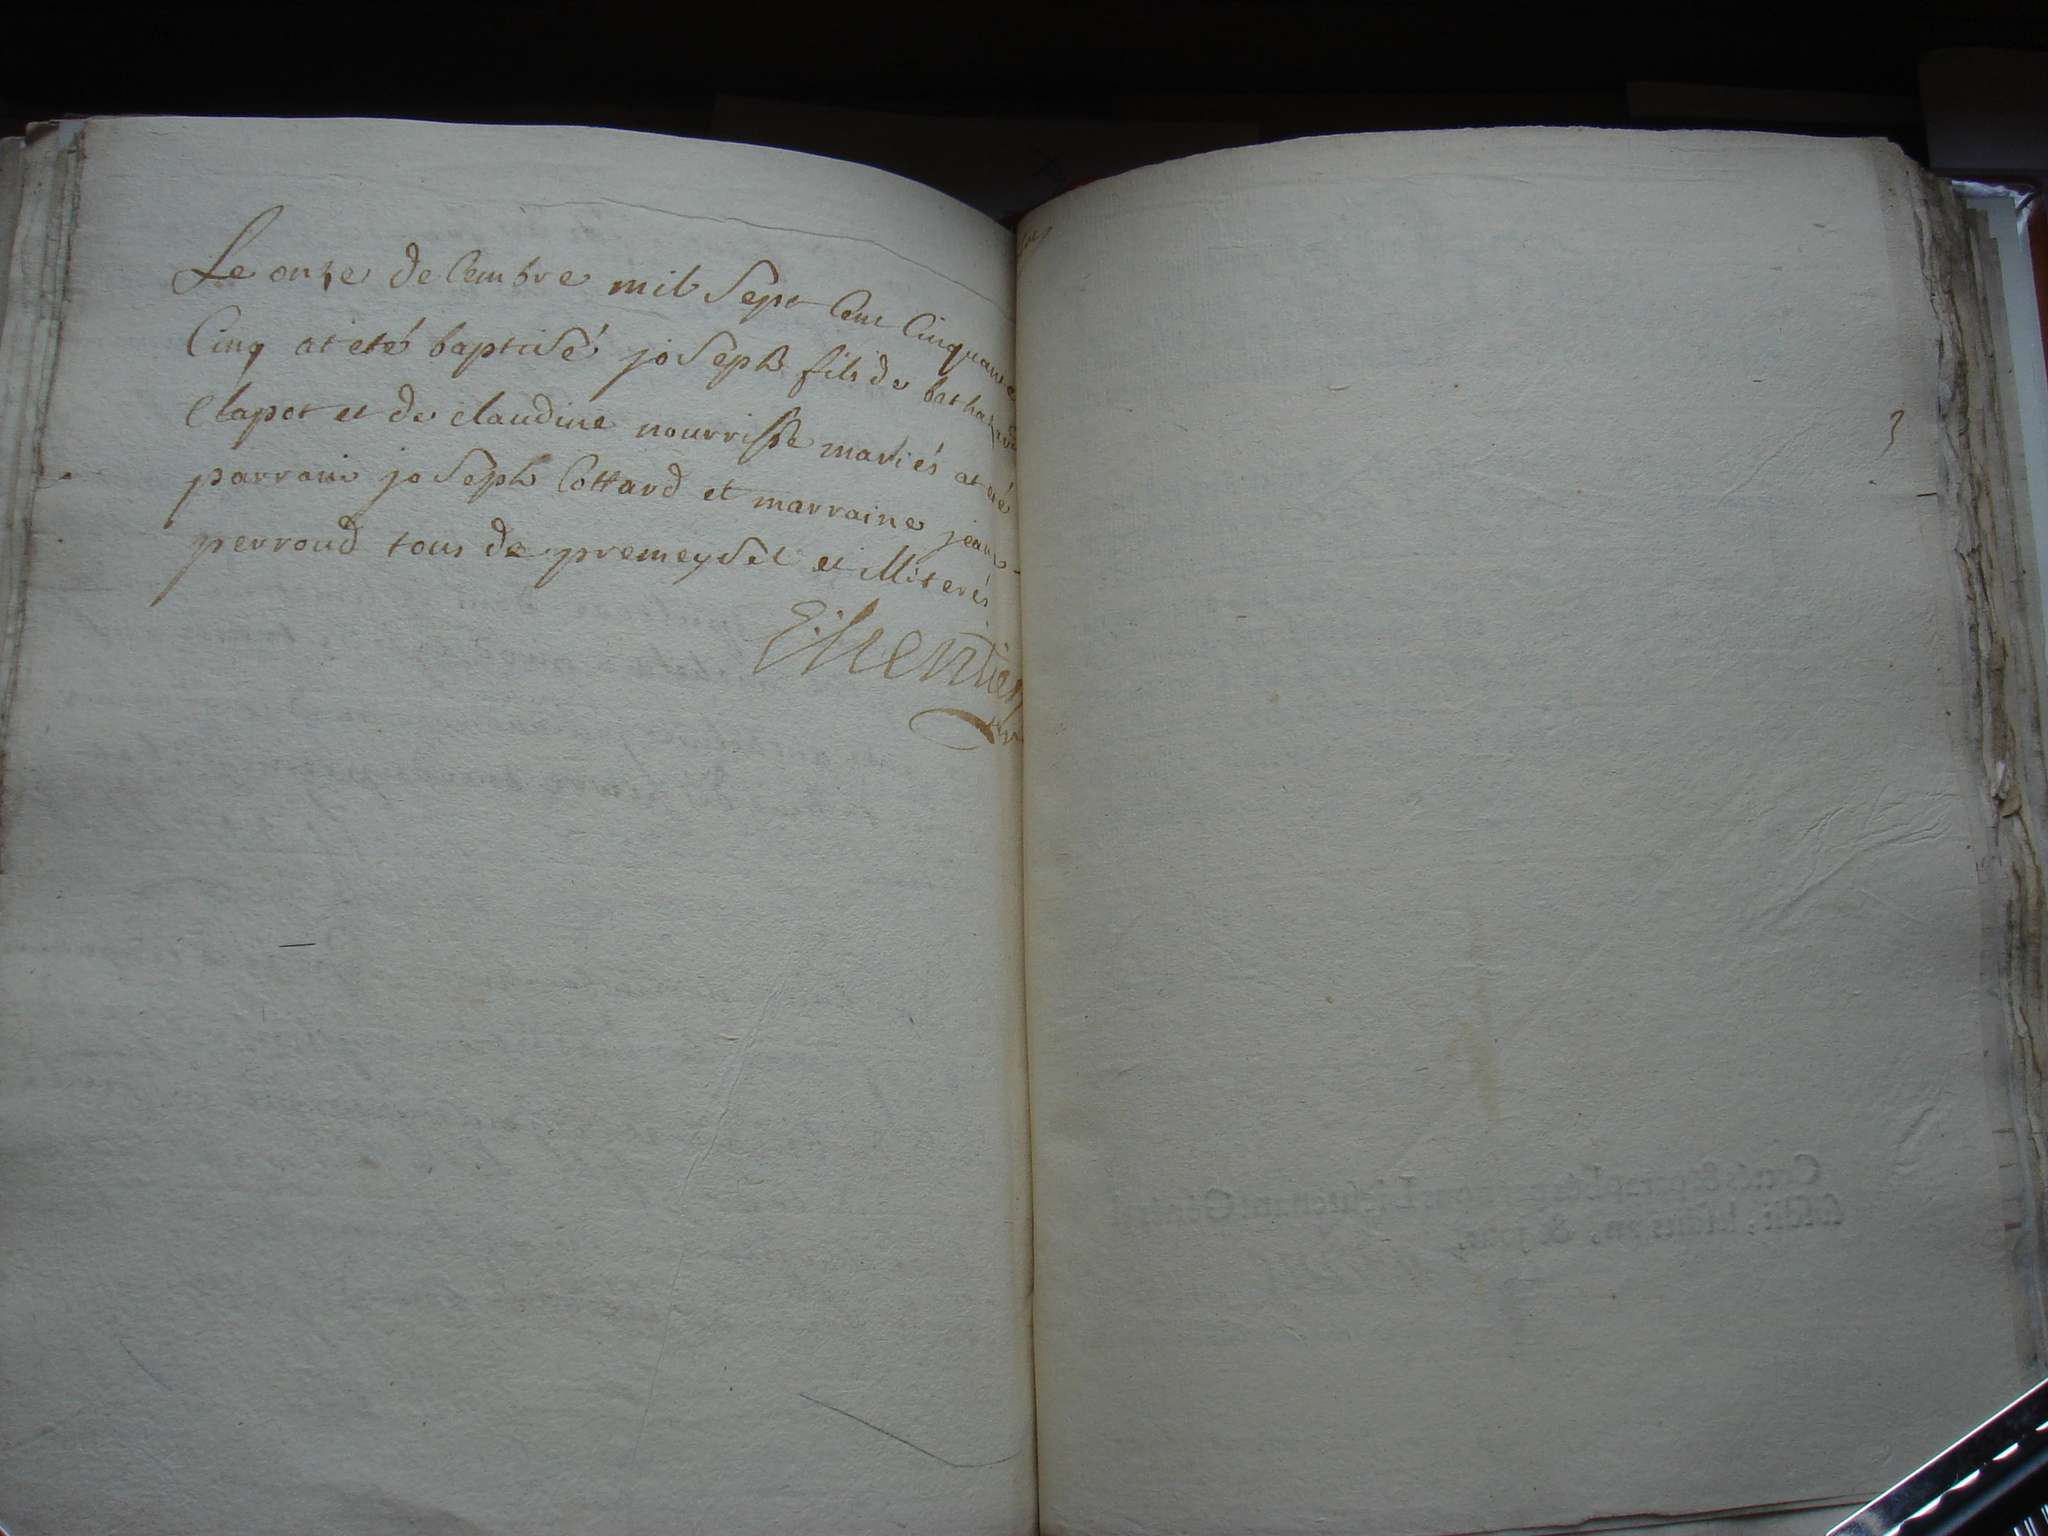 Le onze decembre mil sept cent cinquante
Cinq at eté baptisé joseph fils de balthazard
Clapot et de claudine nourrisse mariés at eté
parrain joseph Cottard et marraine jeanne
perroud tous de premeysel et illiterés